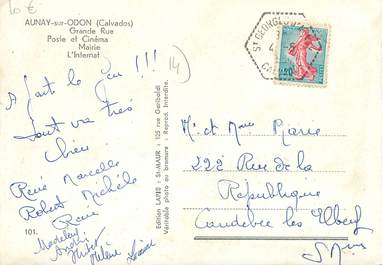 10 €
AUNAY-sur-ODON (Calvados)
Grande Rue
Poste et Cinéma
Mairie
L'Infernat
ST GEORGES
CALVADOS
14
A fait le jeu !!!
tout va très
bien
René Marcelle
Robert Michèle
101.
Madeleine
André
Hélène
Edition LAPIE - St-MAUR : 125 rue Garibaldi
Véritable photo au bromure - Reprod. Interdite.
M. et Mme Pierre
222 Rue de la
République
Caudebec les Elbeuf
S. Mme